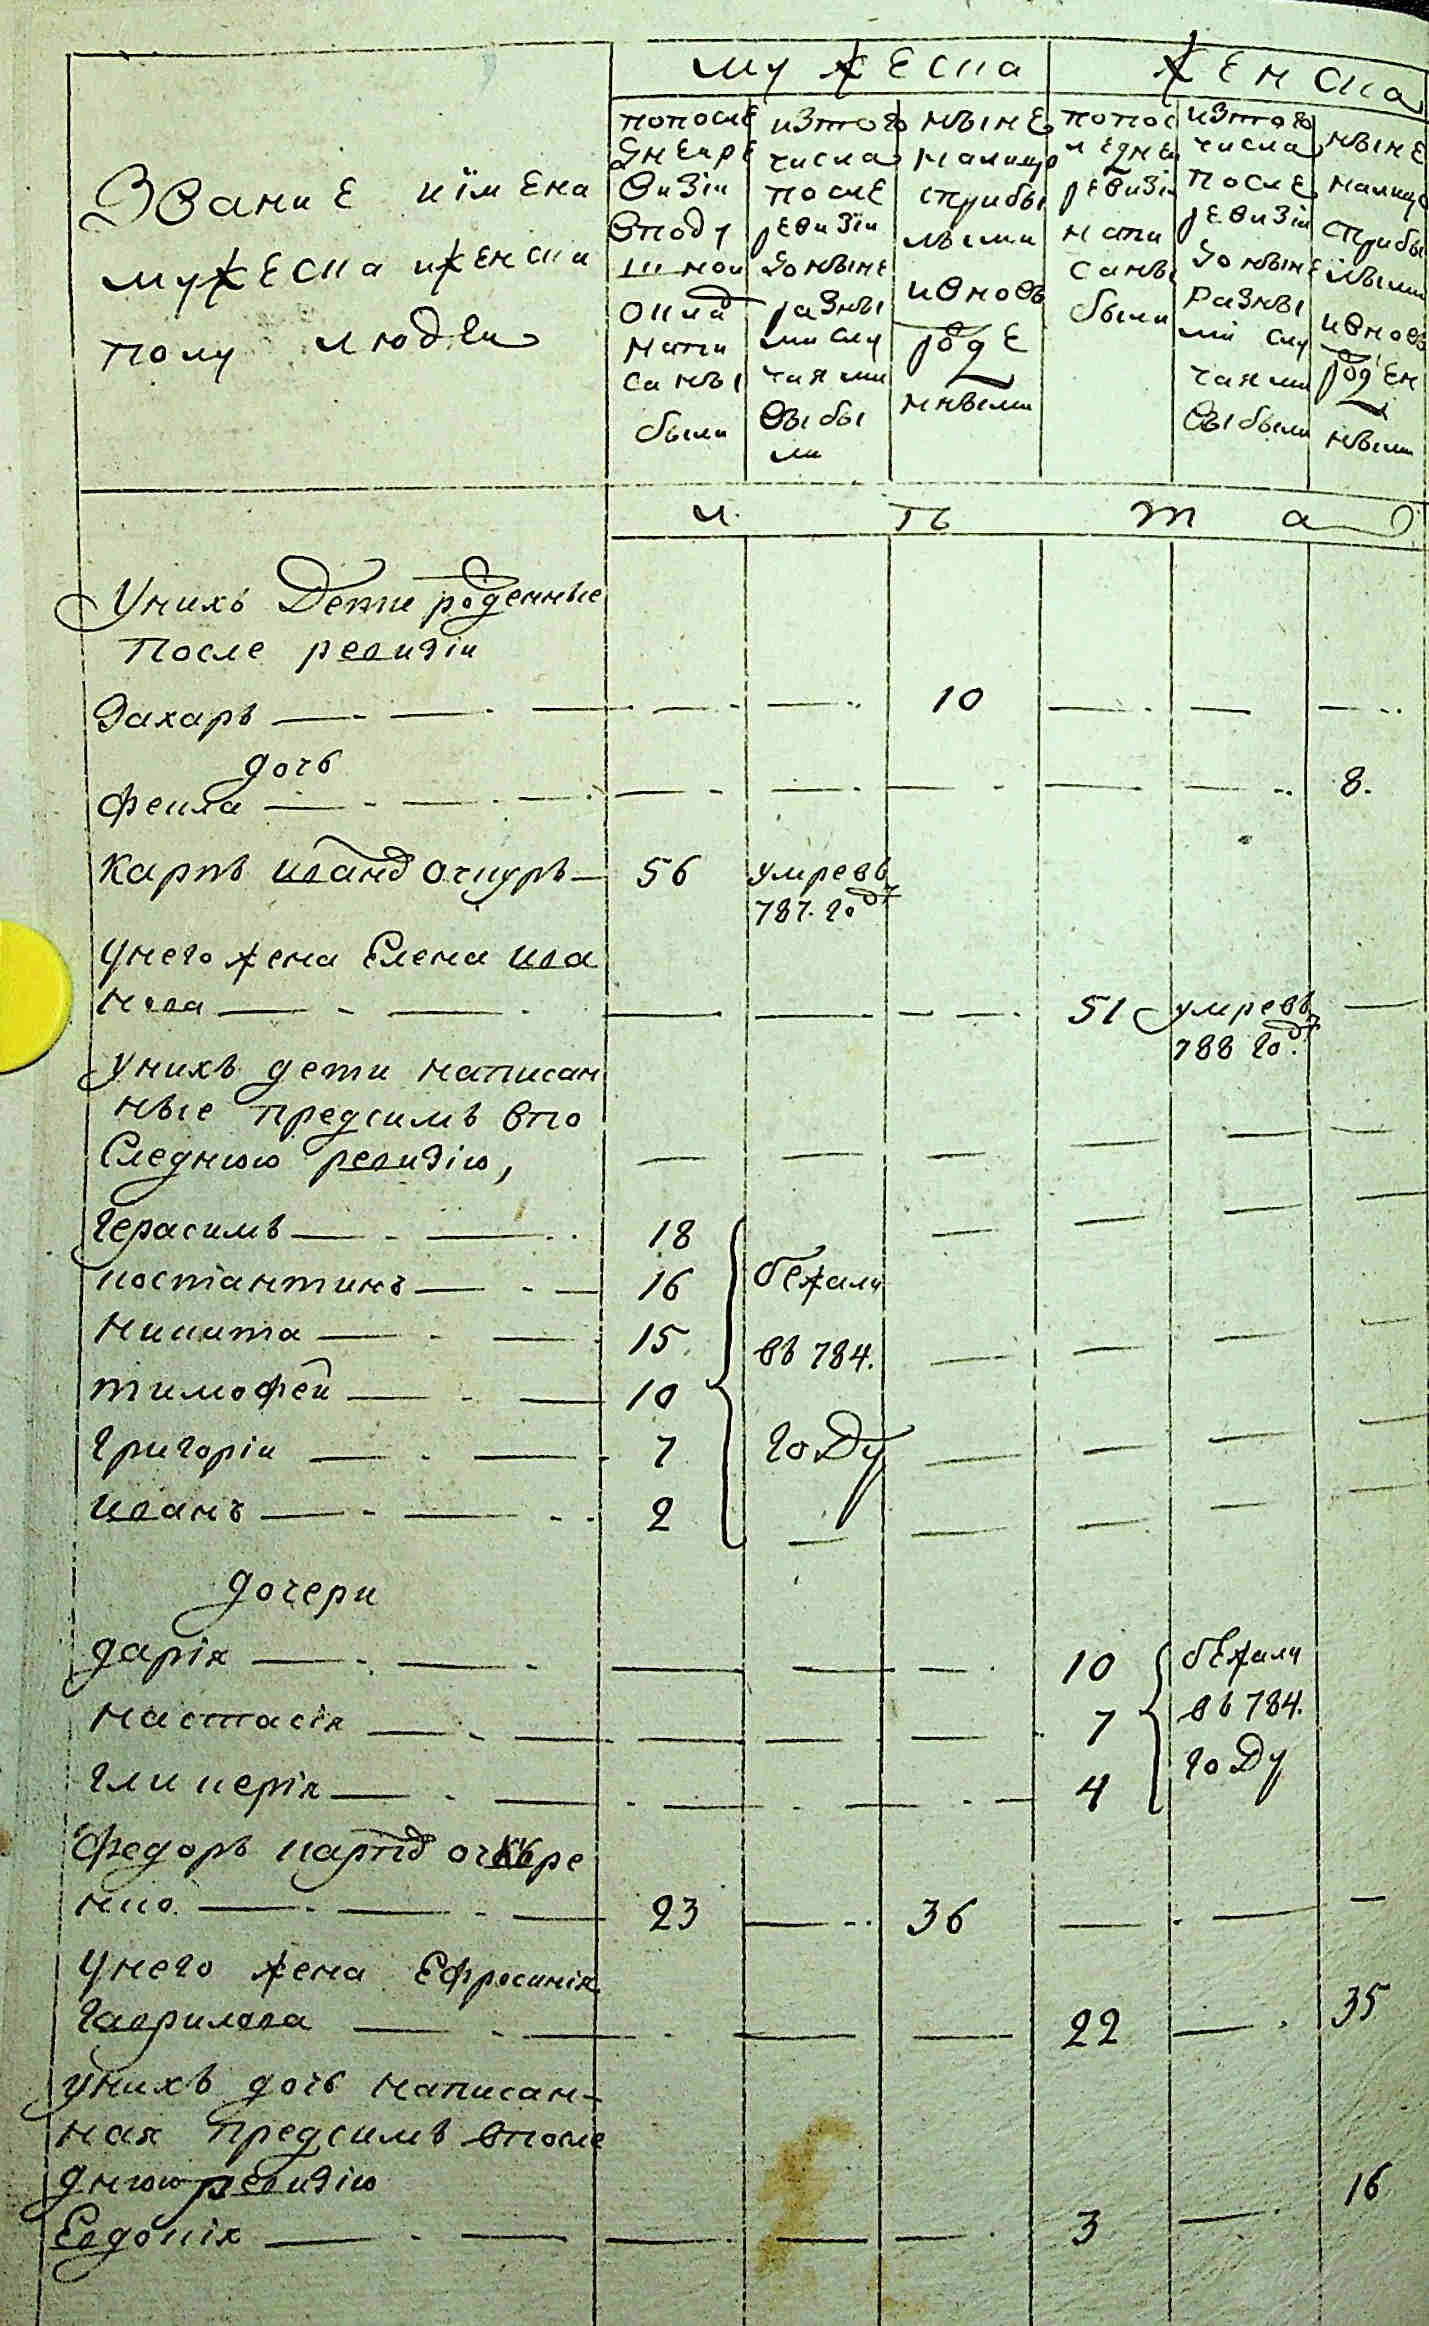 мужеска
женска
Звание и имена
мужеска и женска
полу людеи
попосле
днеи ре
визіи
вподу
шнои
окла
напи
саны
были
изтого
числа
после
ревизіи
доныне
разны
ми слу
чаями
выбы
ли
ныне
налицо
сприбы
лыми
ивновь
роде
нными
попос
ледней
ревизіи
напи
саны
были
изтого
числа
после
ревизіи
доныне
разны
ми слу
чаями
выбыли
ныне
налицо
сприбы
лыми
ивновь
роден
ными
л ѣ т а
Унихъ дети роденные
После ревизіи
Захаръ 10
дочь
Фекла 8.
Карпъ Иванд Очкуръ 56 умревъ
787. году
Унего жена Елена Ива
нова 51 умревъ
788 году
Унихъ дети написан
ные предсимъ впо
Следнюю ревизію,
Герасимъ 18
костантинъ 16 бежали
Никита 15 въ 784.
тимофеи 10
Григоріи 7 году
Иванъ 2
дочери
дарія 10 бежали
настасія 7 въ 784.
гликерія 4 году
Федоръ карпд очкуре
нко. 23 36
Унего жена Ефросинія
Гаврилова 22 35
Унихъ дочь написан-
ная предсимъ впосле
днюю ревизію
Евдокія 3 16